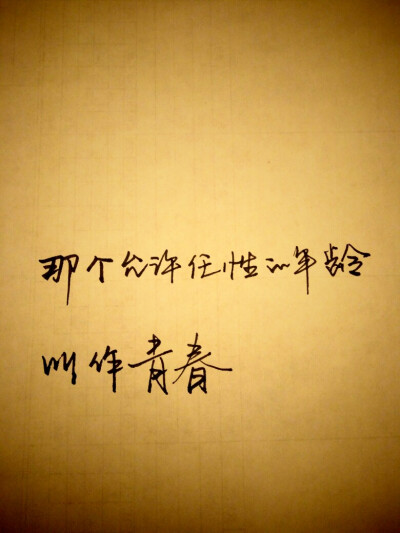 那个允许任性的年龄
叫作青春